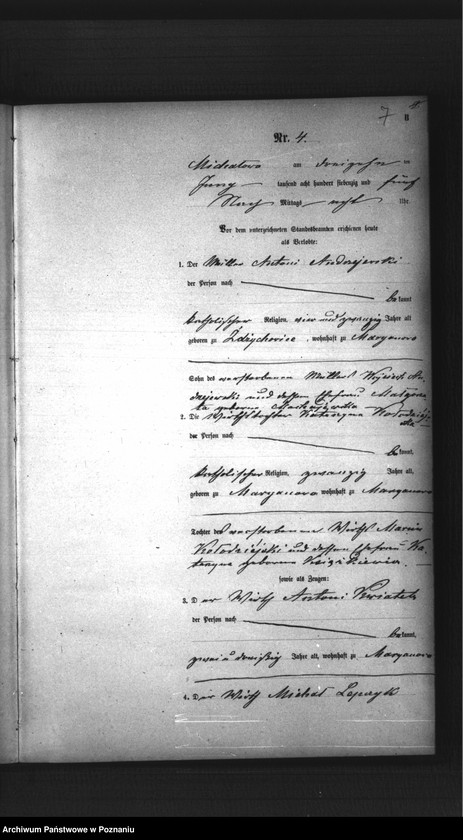 7
8
Nr. 4.
Michalowo am dreizehn
Juny tausend acht hundert siebenzig und fünf
Nach Mittags acht Uhr.
Vor dem unterzeichneten Standesbeamten erschienen heute
als Verlobte:
1. Der Müller Antoni Andrzejewski
der Person nach
Bekannt
katholischer Religion, vier und zwanzig Jahre alt
geboren zu Zdzychowice, wohnhaft zu Maryanowo
Sohn des verstorbenen Müllers Wojciech An-
drzejewski und dessen Ehefrau Małgorza-
ta geborene
2. Die Wirthstochter Katarzyna Kołodziej-
ska
der Person nach
Bekannt,
katholischer Religion, zwanzig Jahre alt,
geboren zu Maryanowo wohnhaft zu Maryanowo
Tochter des verstorbenen Wirths Marcin
Kołodziejski und dessen Ehefrau Ka-
tarzyna geborene
sowie als Zeugen:
3. Der Wirth Antoni Kwiatek
der Person nach
Bekannt,
zwei u dreißig Jahre alt, wohnhaft zu Maryanowo
4. Der Wirth Michał Lepczyk
Archiwum Państwowe w Poznaniu